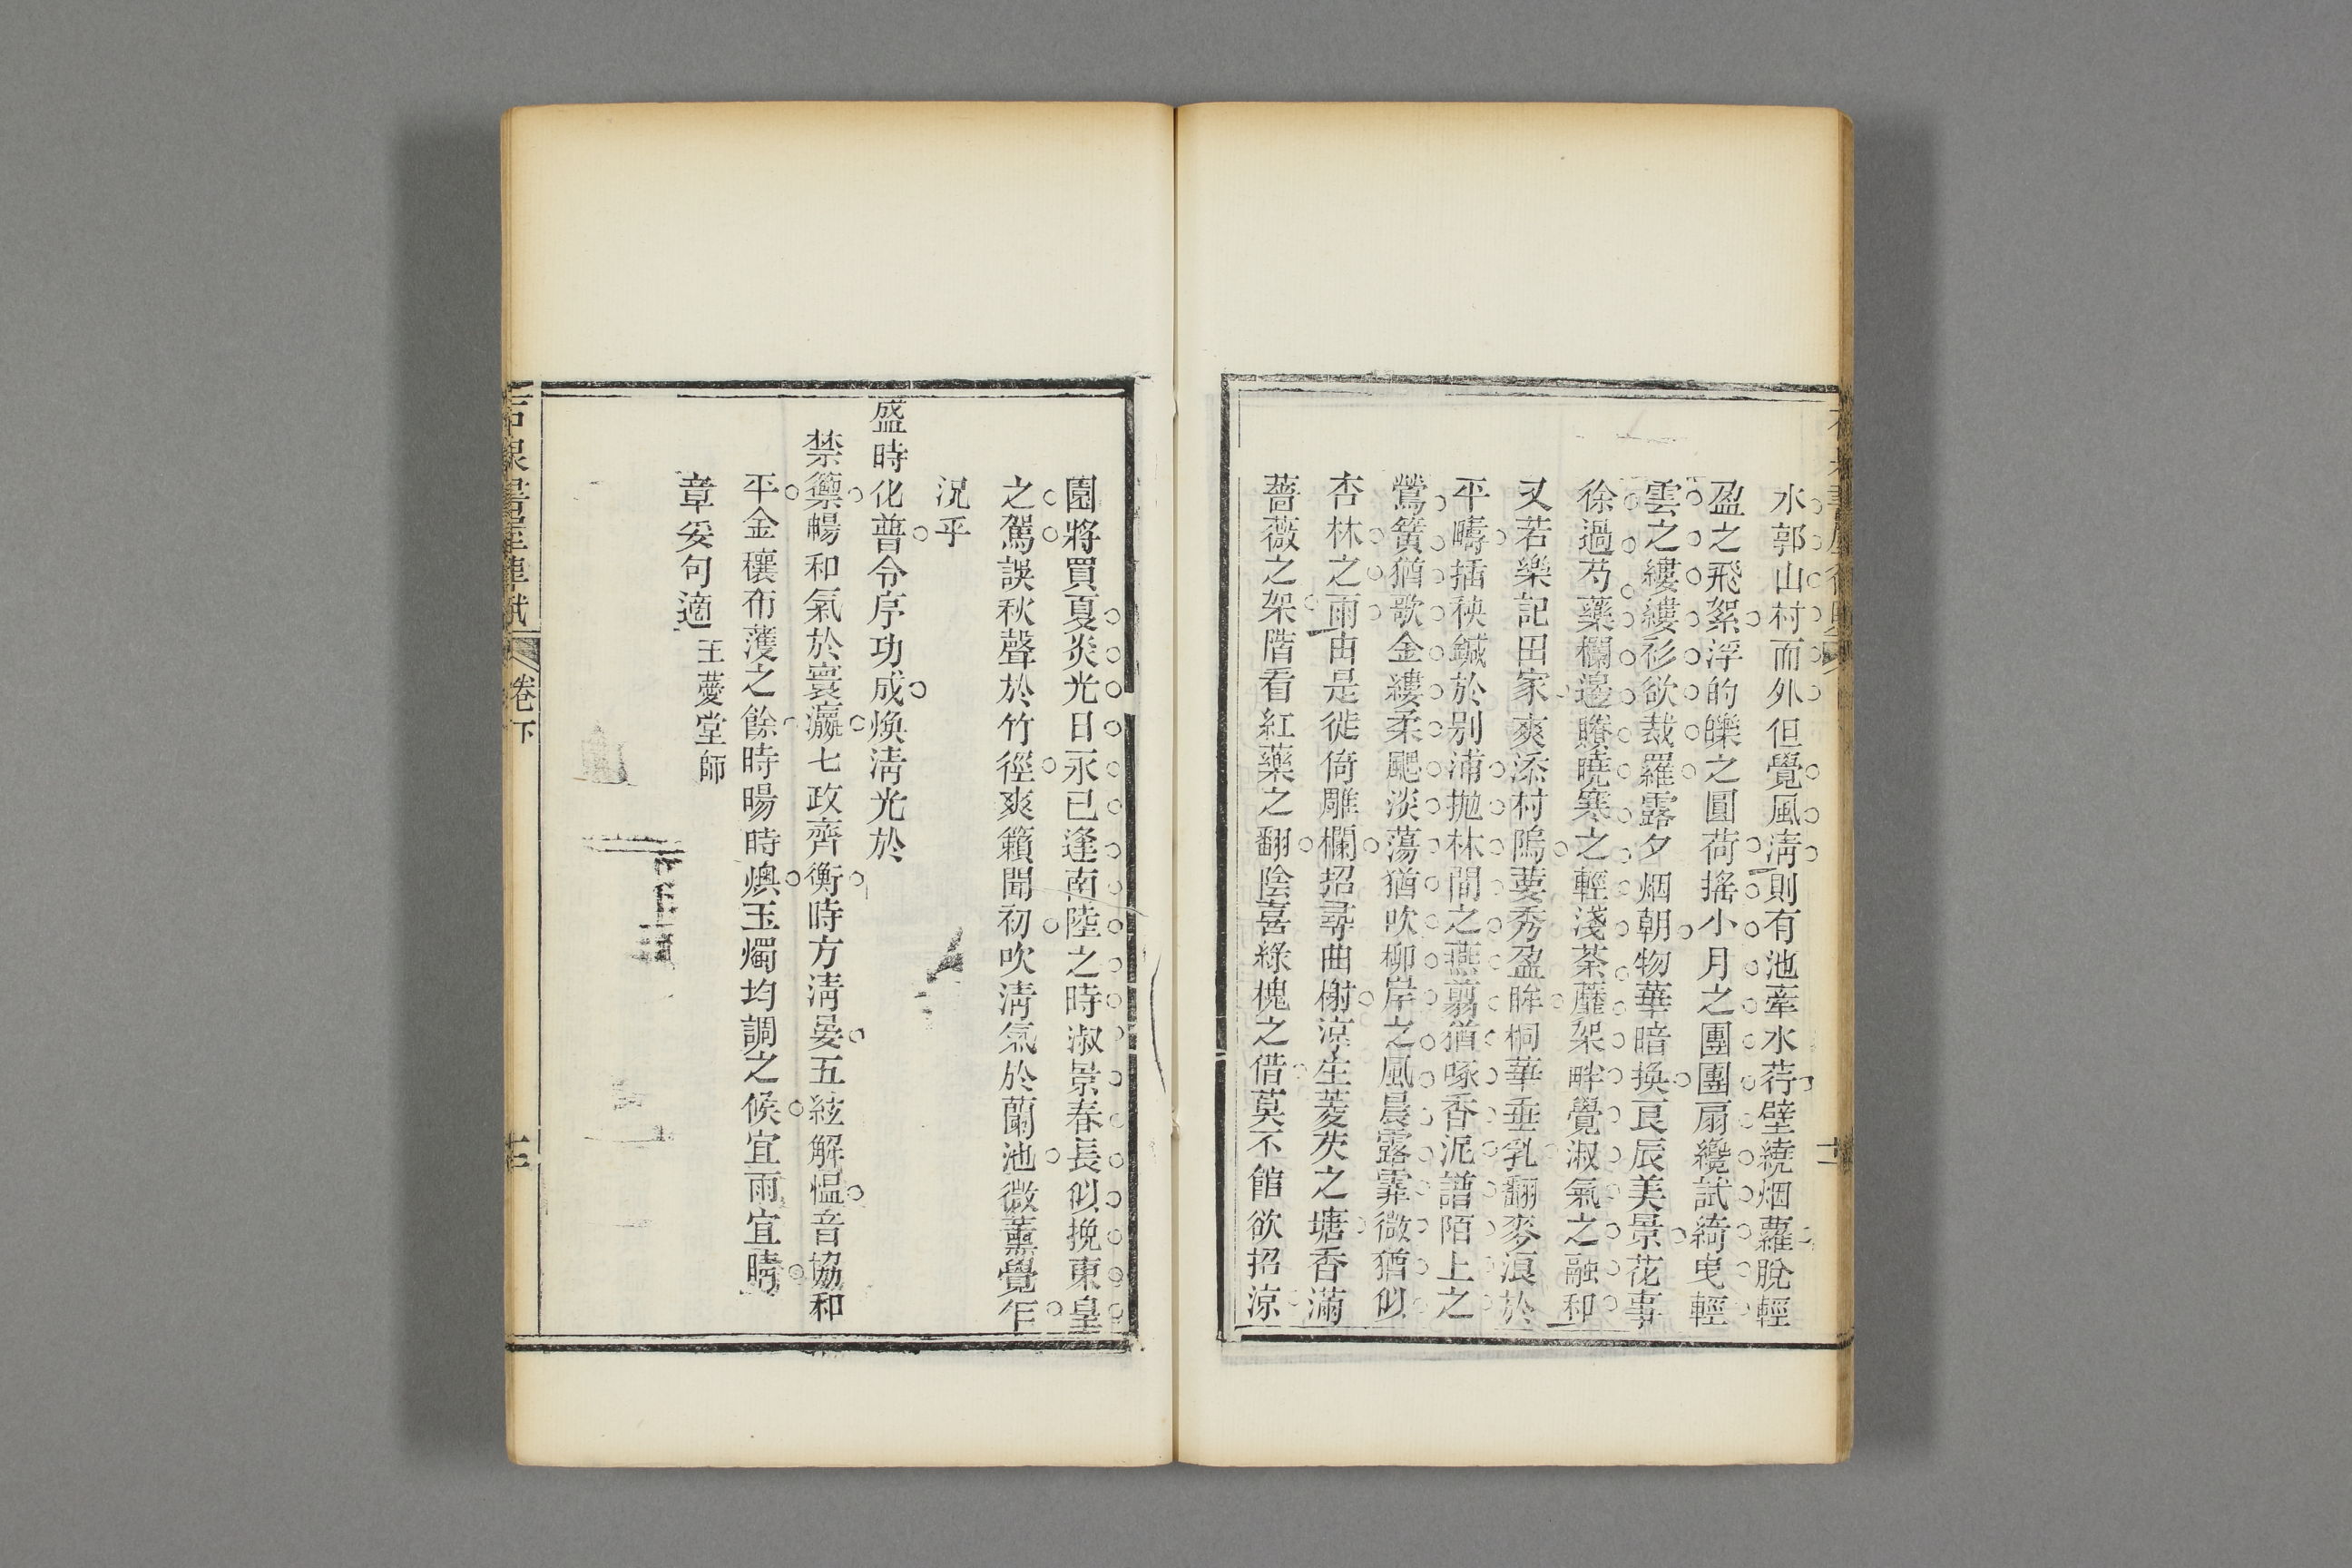 水郭山村而外但覺風淸則有池牽水荇壁繞烟蘿脫輕
盈之飛絮浮的皪之圓荷搖小月之團團扇纔試綺曳輕
雲之縷縷衫欲裁羅露夕烟朝物華暗換良辰美景花事
徐過芍藥欄邊賸曉寒之輕淺荼蘼架畔覺淑氣之融和
又若樂記田家爽添村塢葽秀盈眸桐華垂乳翻麥浪於
平疇插秧鍼於别浦抛林間之燕翦猶啄香泥譜陌上之
鶯簧猶歌金縷柔颸淡蕩猶吹柳岸之風晨露霏微猶似
杏林之雨由是徙倚雕欄招尋曲榭涼生菱芡之塘香滿
薔薇之架階看紅藥之翻陰喜綠槐之借莫不館欲招涼
園將買夏炎光日永已逢南陸之時淑景春長似挽東皇
之駕誤秋聲於竹徑爽籟聞初吹淸氣於蘭池微薰覺乍
況乎
盛時化普令序功成煥淸光於
禁籞暢和氣於寰瀛七政齊衡時方淸晏五絃解慍音協和
平金穰布濩之餘時暘時燠玉燭均調之候宜雨宜晴
章妥句適 王薆堂師
卷下
十二